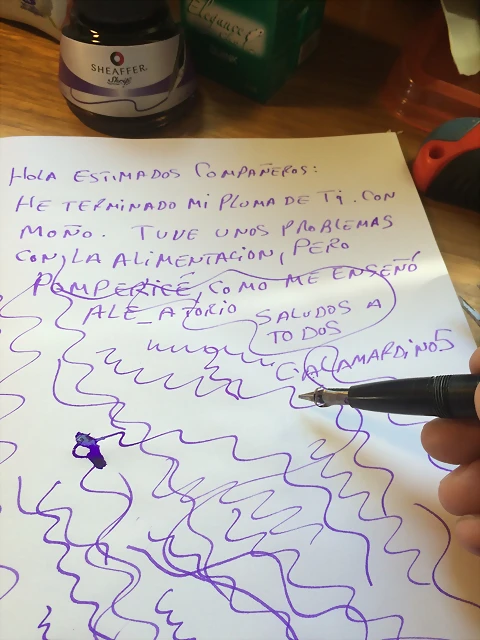 SHEAFFER
Skrip
Elegance
HOLA ESTIMADOS COMPAÑEROS:
HE TERMINADO MI PLUMA DE Ti. CON
MOÑO. TUVE UNOS PROBLEMAS
CON LA ALIMENTACION, PERO
POMPERICÉ, COMO ME ENSEÑÓ
ALE_ATORIO SALUDOS A
TODOS
CALAMARDINOS